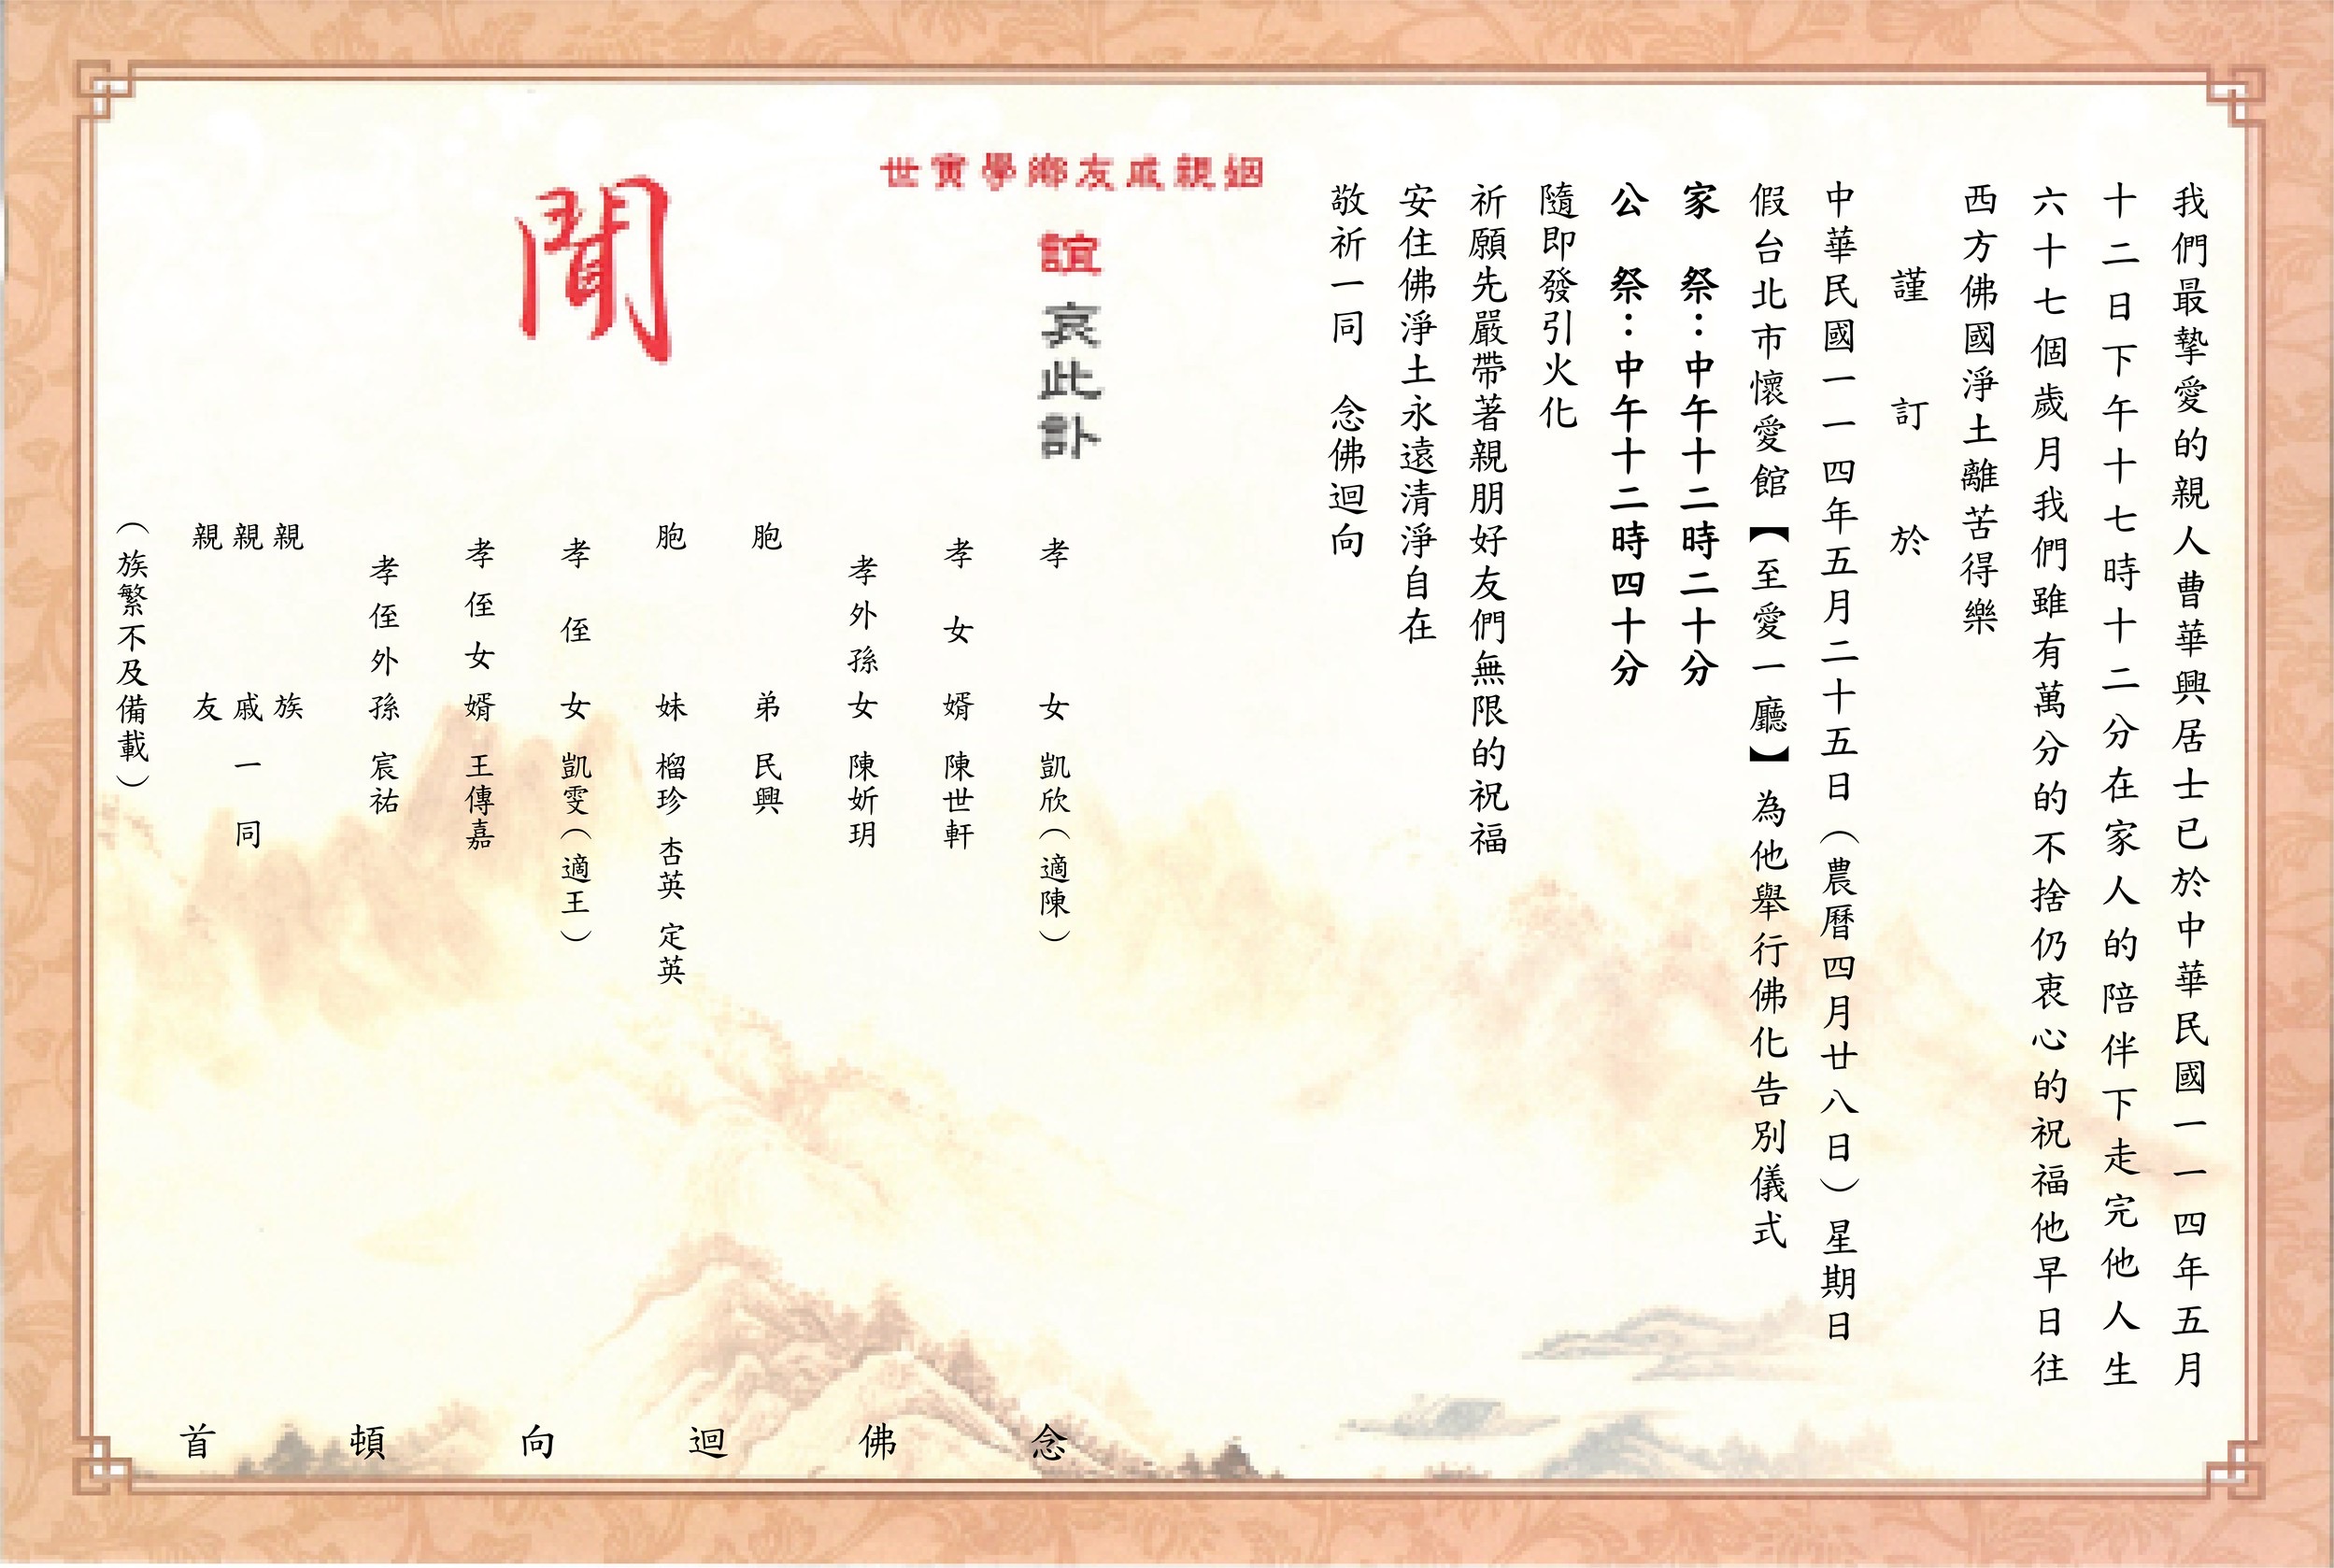 我們最摯愛的親人曹華興居士已於中華民國一一四年五月
十二日下午十七時十二分在家人的陪伴下走完他人生
六十七個歲月我們雖有萬分的不捨仍衷心的祝福他早日往
西方佛國淨土離苦得樂
謹訂於
中華民國一一四年五月二十五日（農曆四月廿八日）星期日
假台北市懷愛館【至愛一廳】為他舉行佛化告別儀式
家 祭：中午十二時二十分
公 祭：中午十二時四十分
隨即發引火化
祈願先嚴帶著親朋好友們無限的祝福
安住佛淨土永遠清淨自在
敬祈一同 念佛迴向
姻親戚友鄉學寅世
誼 哀此訃
聞
孝女 凱欣（適陳）
孝女婿 陳世軒
孝外孫女 陳妡玥
胞弟 民興
胞妹 榴珍 杏英 定英
孝侄女 凱雯（適王）
孝侄女婿 王傳嘉
孝侄外孫 宸祐
親族
親戚一同
親友
（族繁不及備載）
念佛迴向頓首